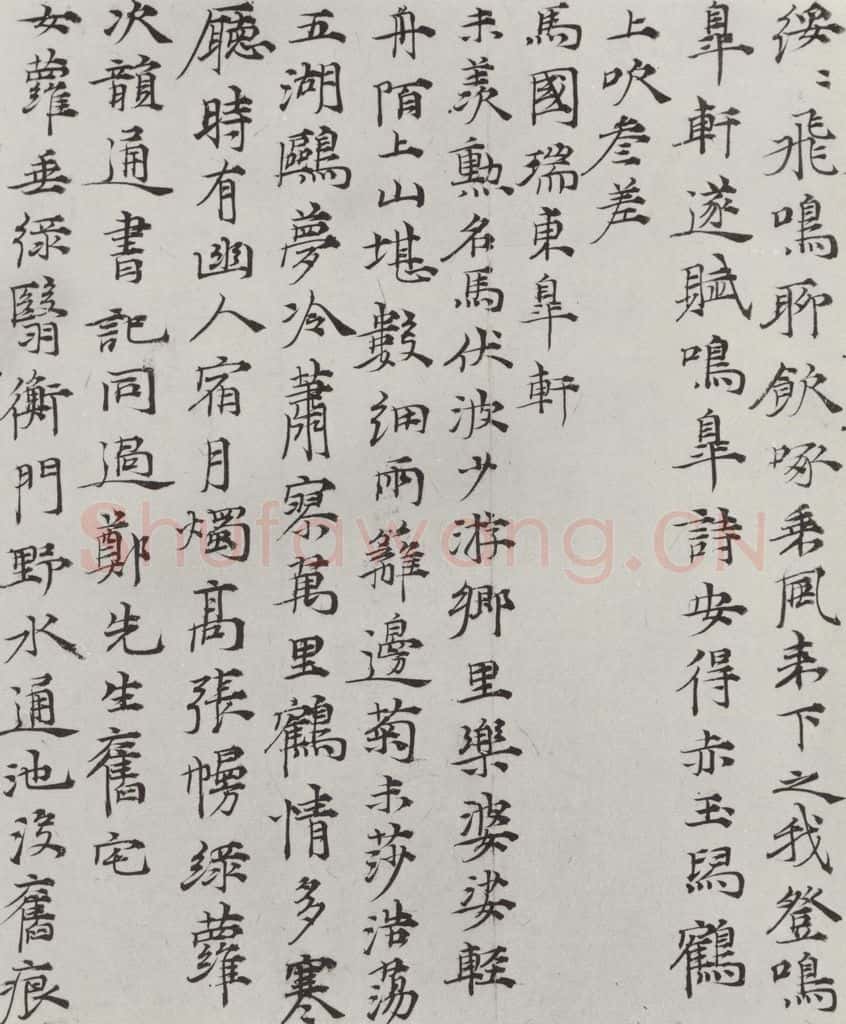 綏〻飛鳴聊飲啄乗風来下之我登鳴
臯軒遂賦鳴臯詩安得赤玉舄鶴
上吹叁差
馬國瑞東臯軒
未羨勲名馬伏波少游鄉里樂婆娑軽
舟陌上山堪數細雨籬邊菊未莎浩荡
五湖鷗夢冷蕭寥萬里鶴情多寒
廳時有幽人宿月燭髙張幔緑蘿
次韻通書記同過鄭先生舊宅
女蘿垂緑翳衡門野水通池没舊痕
Shufawang.CN